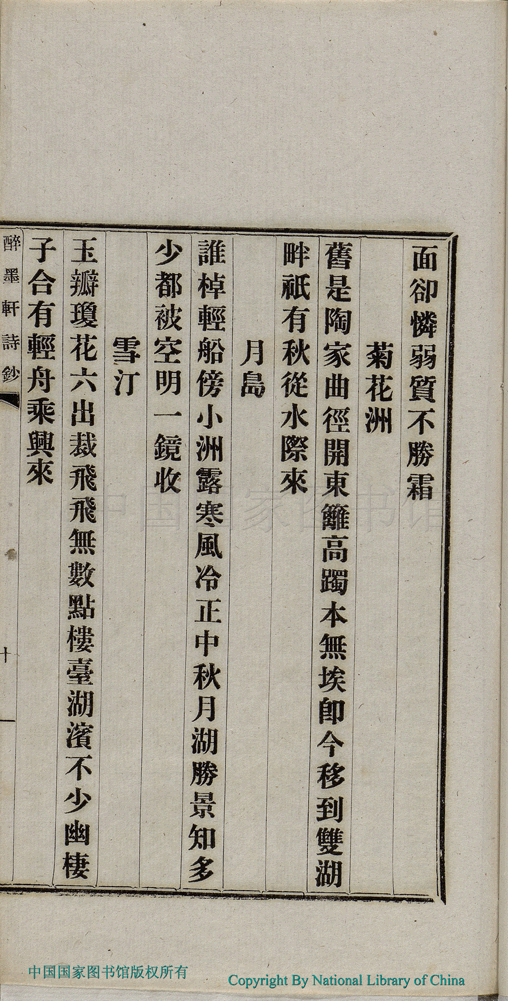 面卻憐弱質不勝霜
菊花洲
舊是陶家曲徑開東籬高躅本無埃卽今移到雙湖
畔祇有秋從水際來
月島
誰棹輕船傍小洲露寒風冷正中秋月湖勝景知多
少都被空明一鏡收
雪汀
玉瓣瓊花六出裁飛飛無數點樓臺湖濱不少幽棲
子合有輕舟乘興來
醉墨軒詩鈔
十
中国国家图书馆
中国国家图书馆版权所有
Copyright By National Library of China